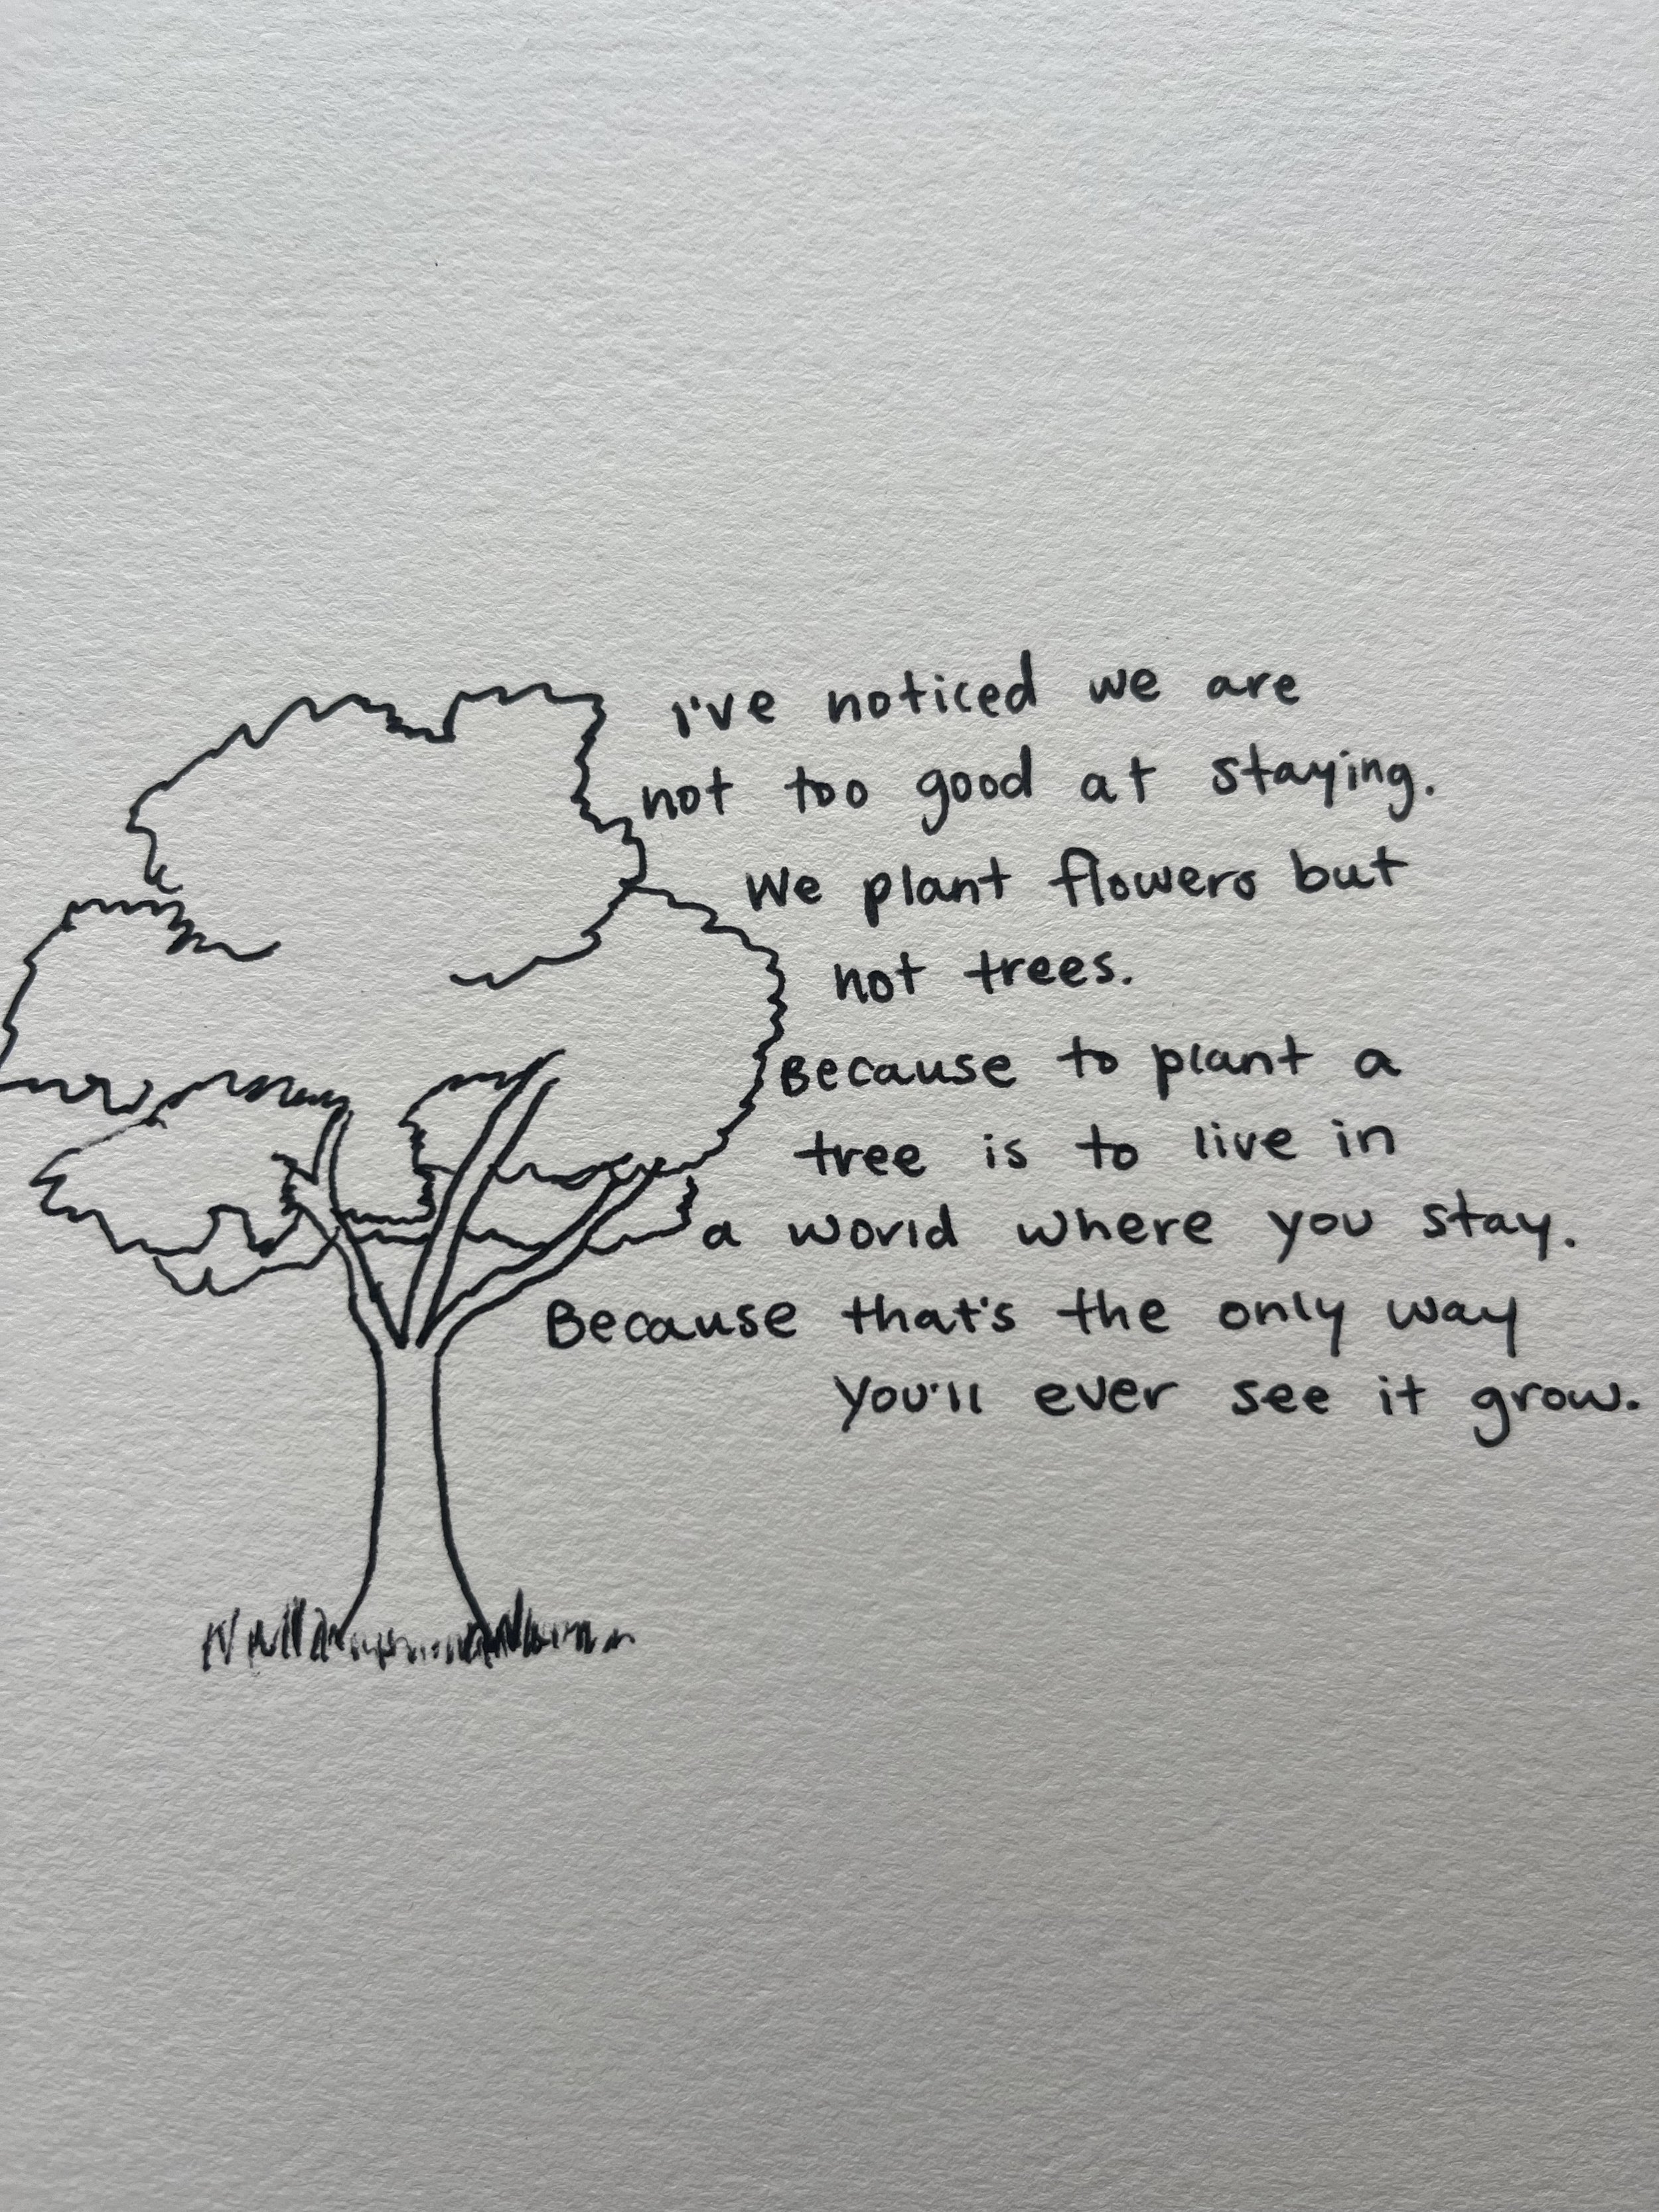 I've noticed we are
not too good at staying.
We plant flowers but
not trees.
Because to plant a
tree is to live in
a world where you stay.
Because that's the only way
you'll ever see it grow.